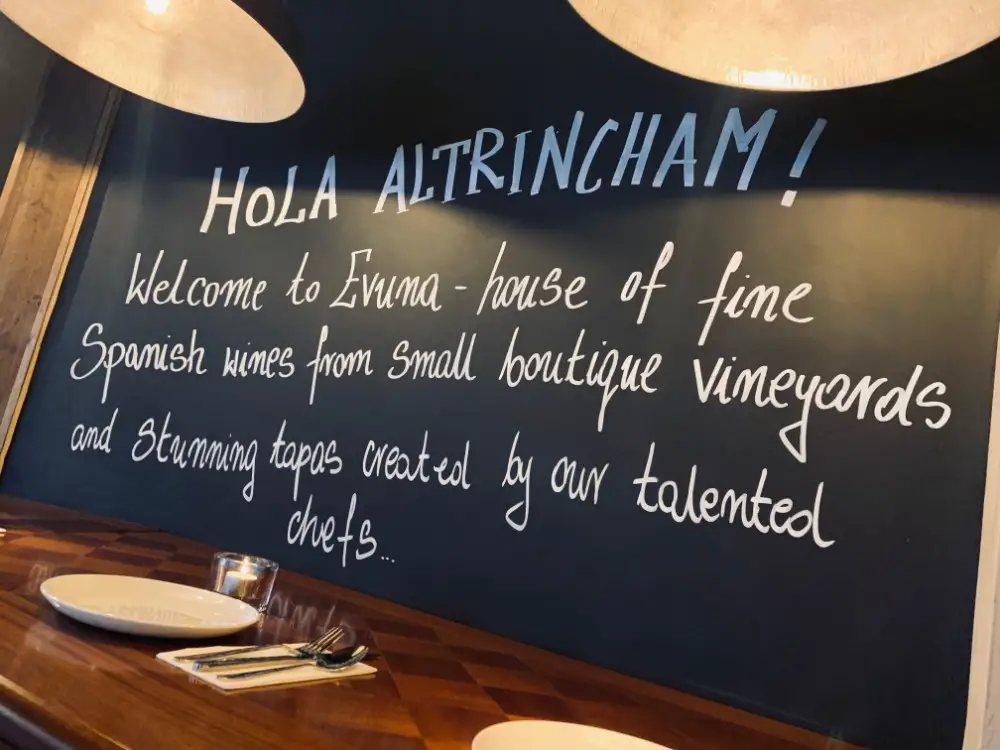 HOLA ALTRINCHAM!
Welcome to Evuna - house of fine
Spanish wines from small boutique vineyards
and stunning tapas created by our talented
chefs...